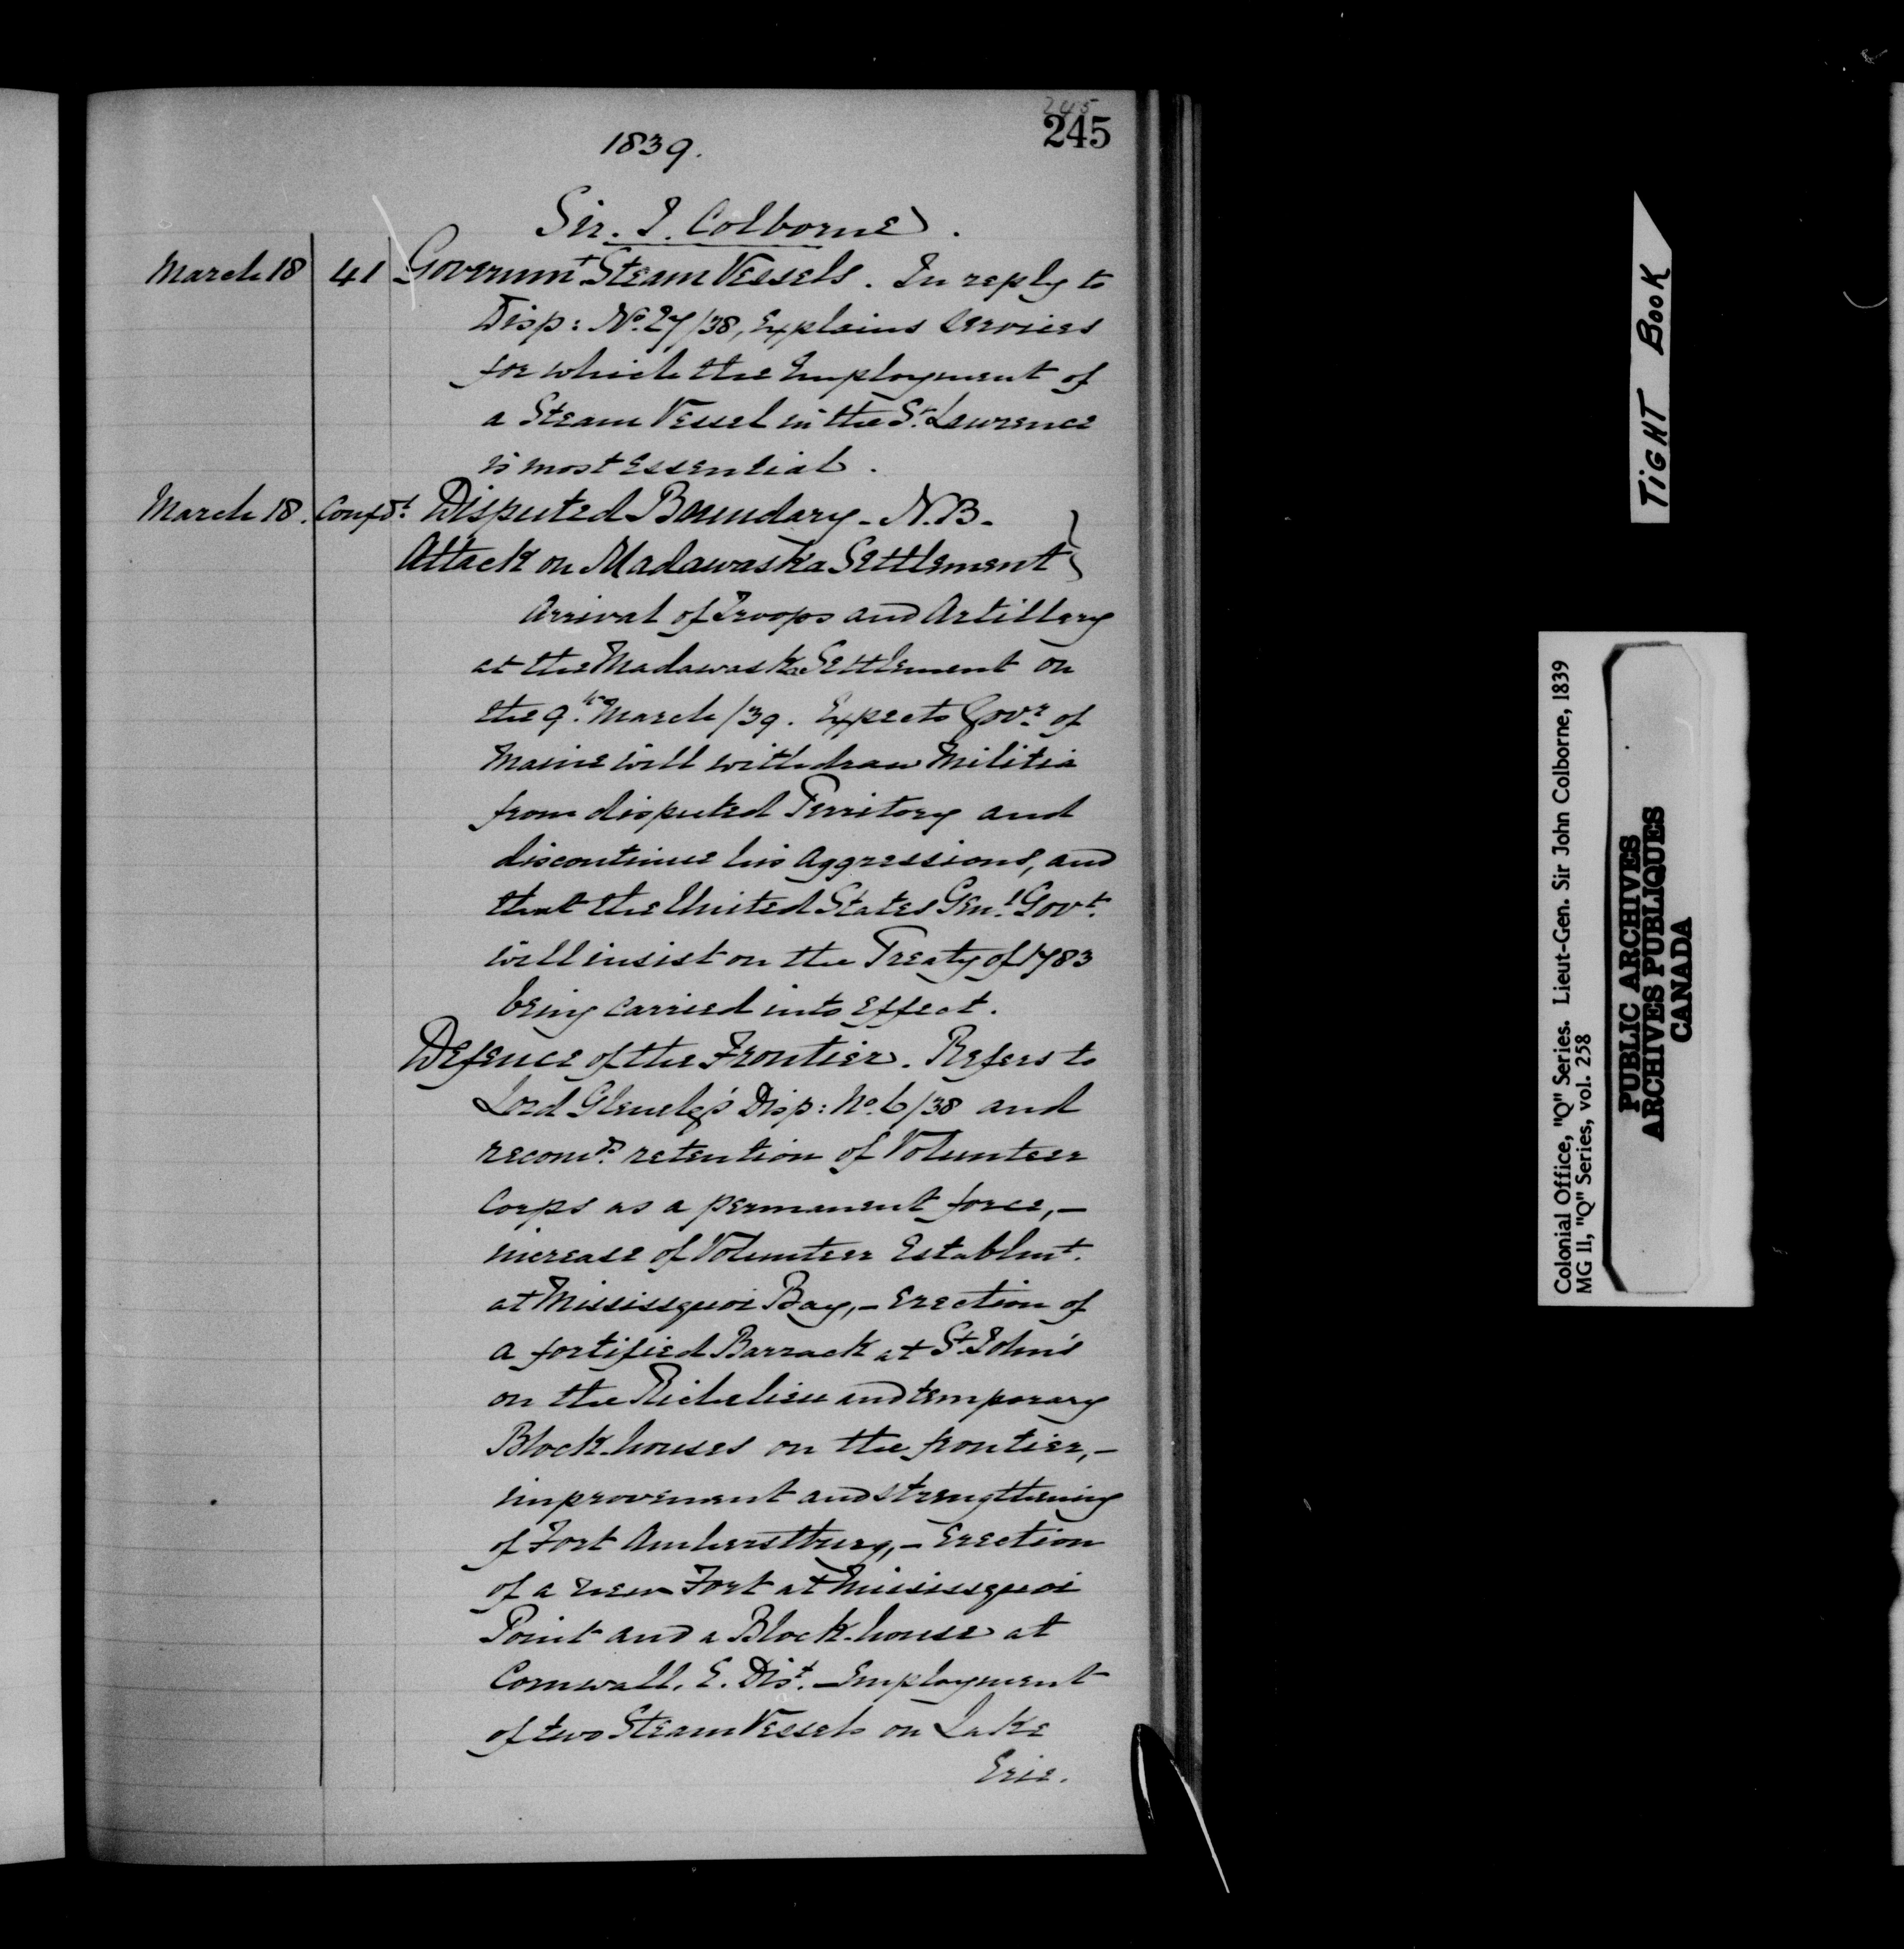 245
245
1839.
Sir. J. Colborne.
March 18 41 Governmt Steam Vessels. In reply to
Disp: No. 27/38, Explains Services
for which the Employment of
a Steam Vessel in the St. Lawrence
is most Essential.
March 18. Confdl. Disputed Boundary - N.B. -
Attack on Madawaska Settlement }
Arrival of Troops and Artillery
at the Madawaska Settlement on
the 9th March/39. Expects Govr. of
Maine will withdraw Militia
from disputed Territory and
discontinue his Aggressions, and
that the United States Genl. Govt.
will insist on the Treaty of 1783
being carried into Effect.
Defence of the Frontier. Refers to
Lord Glenelg's Disp: No. 6/38 and
recomds. retention of Volunteer
Corps as a permanent force, -
increase of Volunteer Establmt.
at Mississquoi Bay, - Erection of
a fortified Barrack at St. John's
on the Richelieu and temporary
Block-houses on the frontier, -
improvement and strengthening
of Fort Amherstburg, - Erection
of a new Fort at Mississquoi
Point and a Block-house at
Cornwall. E. Dist. - Employment
of two Steam Vessels on Lake
Erie.
TIGHT BOOK
Colonial Office, "Q" Series. Lieut-Gen. Sir John Colborne, 1839
MG 11, "Q" Series, vol. 258
PUBLIC ARCHIVES
ARCHIVES PUBLIQUES
CANADA